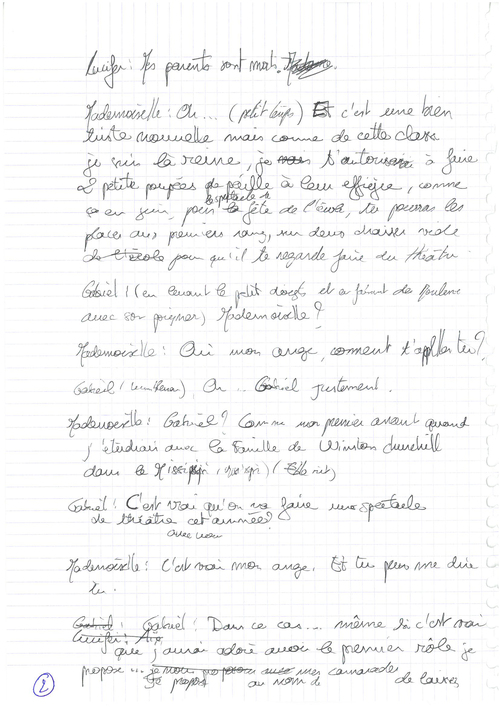 Lucifer : Mes parents sont morts. Madame.
Mademoiselle : Oh ... (petit temps) Et c'est une bien
triste nouvelle mais comme de cette classe
je suis la reine, je t'autorise à faire
2 petite poupées de paille à leur effigie, comme
le spectacle
ça en juin, pour la fête de l'école, tu pourras les
places aux premiers rang, sur deux chaises vide
de l'école pour qu'il te regarde faire du théâtre
Gabriel : (en levant le petit doigts et en faisant de
avec son poignet) Mademoiselle ?
Mademoiselle : Oui mon ange, comment t'appelles tu ?
Gabriel : Oh ... Gabriel justement.
Mademoiselle : Gabriel ? Comme mon premier amant quand
j'étudiais avec la famille de Winston churchill
dans le Missipipi, (Elle rit)
Gabriel : C'est vrai qu'on va faire un spectacle
de théâtre cet année ?
avec vous
Mademoiselle : C'est vrai mon ange. Et tu peux me dire
tu.
Gabriel : Gabriel : Dans ce cas ... même si c'est vrai
Lucifer :
que j'aurai adoré avoir le premier rôle je
propose ... mes camarades
Je propose au nom de de laisser
2